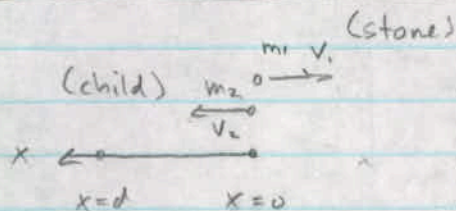 (stone)
m₁ v₁
(child) m₂
v₂
x
x=d x=0